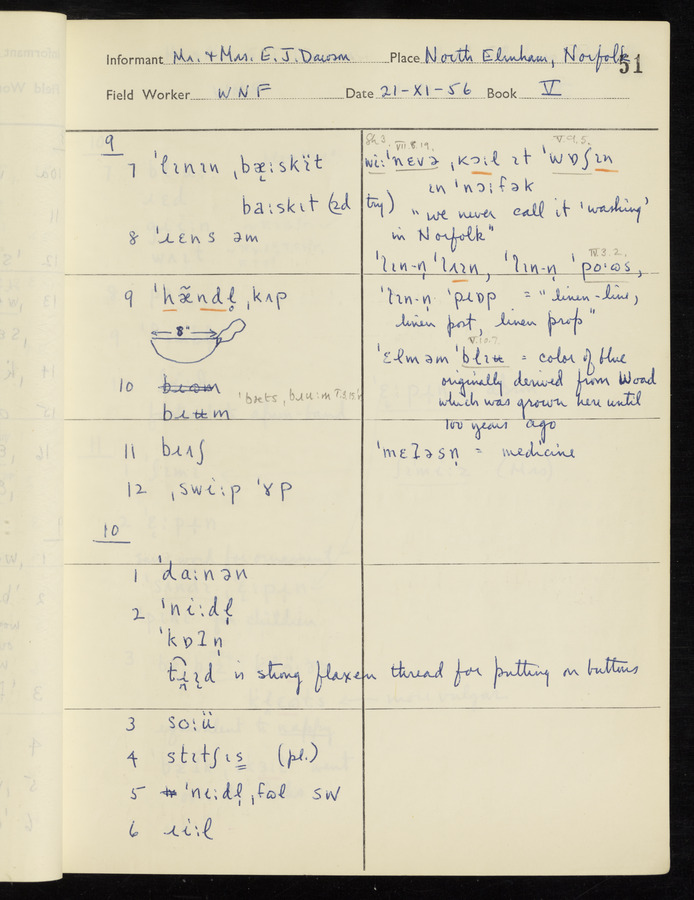 Informant Mr. & Mrs. E. J. Dawson Place North Elmham, Norfolk 51
Field Worker W N F Date 21-XI-56 Book V
9
7 ˈlɪnɪn ˌbæ̝ːskït
baːskɪt (2d try)
8 ˈɹɛns əm
9 ˈhæ̃ndl̩ ˌkʌp
8"
10 bɹʊm
bɹʉm
11 bɹɪʃ
12 ˌswiːp ˈɤp
10
1 ˈdaːnən
2 ˈniːdl̩
ˈkɒɪn̩
is strong flaxen thread for putting on buttons
3 soːü
4 stɪtʃɪs (pl.)
5 ˈnɪːdl̩ ˌfəl sw
6 ɹiːl
Sh 3. VII.8.19. V.9.5.
wiː ˈnɛvə ˌkɔːl ɪt ˈwɒʃɪn
ɪn ˈnɔːfək
"we never call it 'washing'
in Norfolk"
IV.3.2.
ˈlɪn-n̩ ˈlaɪn, ˈlɪn-n̩ ˈpoːəs,
ˈlɪn-n̩ ˈpɹɒp = "linen-line,
linen post, linen prop"
V.10.7.
ˈɛlməm ˈblɪʉ = color of blue
originally derived from Woad
which was grown here until
100 years ago
ˈmɛɪəsn̩ = medicine